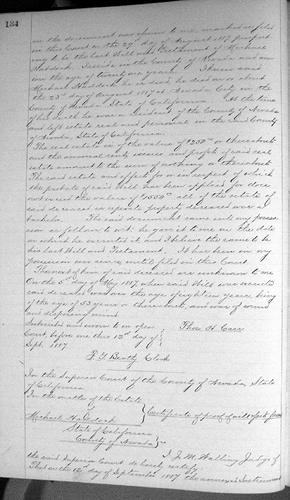 184
on the document now shown to me marked as filed
in this Court on the 29th day of August 1887 purport
ing to be the last Will and Testament of Michael
Hassock. I reside in the County of Nevada and am
over the age of twenty one years. I knew said
Michael in his lifetime he died on or about
the 23rd day of August 1887 at Nevada City in the
County of Nevada State of California. At the time
of his death he was a resident of the County of Nevada
and left estate real and personal in the said County
of Nevada, State of California.
The real estate is of the value of $250 or thereabouts
and the annual rents issues and profits of said real
estate amount to the sum of nothing or thereabouts
The said estate and effects for or in respect of which
the probate of said Will has been applied for does
not exceed the value of all of the estate of
said deceased is separate property deceased was a
bachelor. The said document came into my posses
sion as follows to wit: he gave it to me on the date
on which he executed it and I believe the same to be
his last Will and Testament. It has been in my
possession ever since until filed in this Court
The next of kin of said deceased are unknown to me
On the 5th day of May 1887 when said Will was executed
said deceased was over the age of eighteen years being
of the age of 53 years or thereabouts, and was of sound
and disposing mind
Subscribed and sworn to in open
Court before me this 12th day of
Sept. 1887
Thos. H. Carr
F. G. Beatty Clerk
In the Superior Court of the County of Nevada, State
of California
In the matter of the Estate
of
Michael Hassock
Certificate of proof of will & facts found
State of California
County of Nevada
I J. M. Walling Judge of
the said Superior Court do hereby certify
That on the 12th day of September 1887 the annexed Instrument